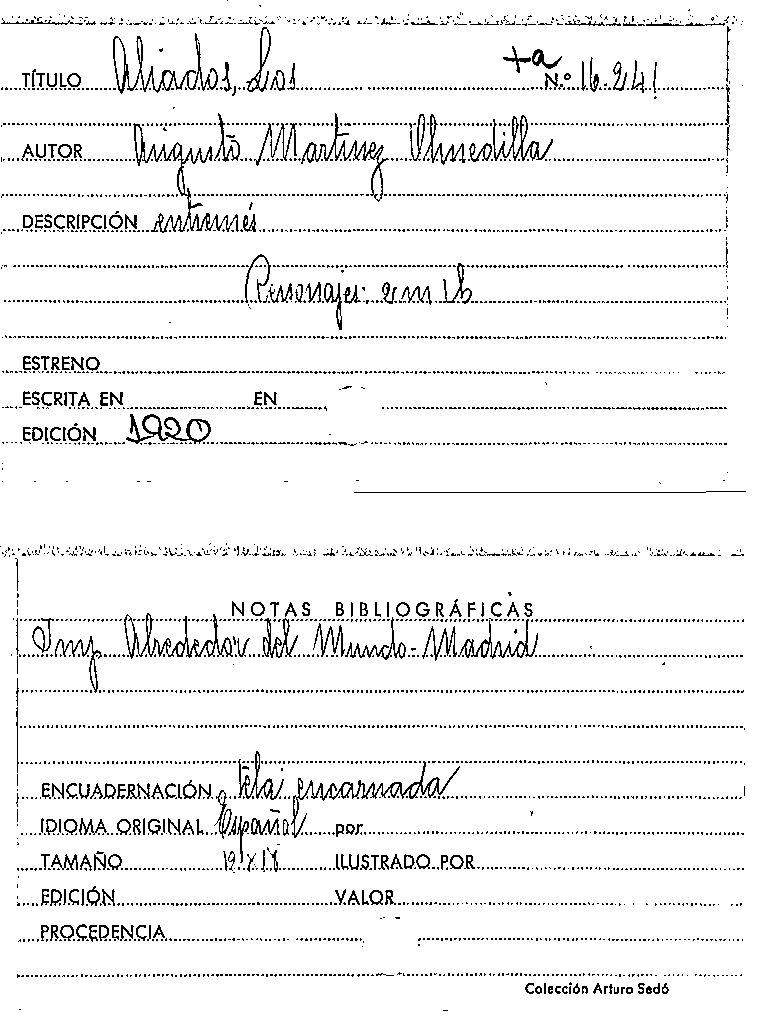 TÍTULO Aliados, Los +a N.º 16.241
AUTOR Augusto Martínez Olmedilla
DESCRIPCIÓN entremés
Personajes: 2m 1h
ESTRENO
ESCRITA EN EN
EDICIÓN 1920
NOTAS BIBLIOGRÁFICAS
Imp. Alrededor del Mundo-Madrid
ENCUADERNACIÓN tela encarnada
IDIOMA ORIGINAL Español por
TAMAÑO 12 x 18 ILUSTRADO POR
EDICIÓN VALOR
PROCEDENCIA
Colección Arturo Sedó